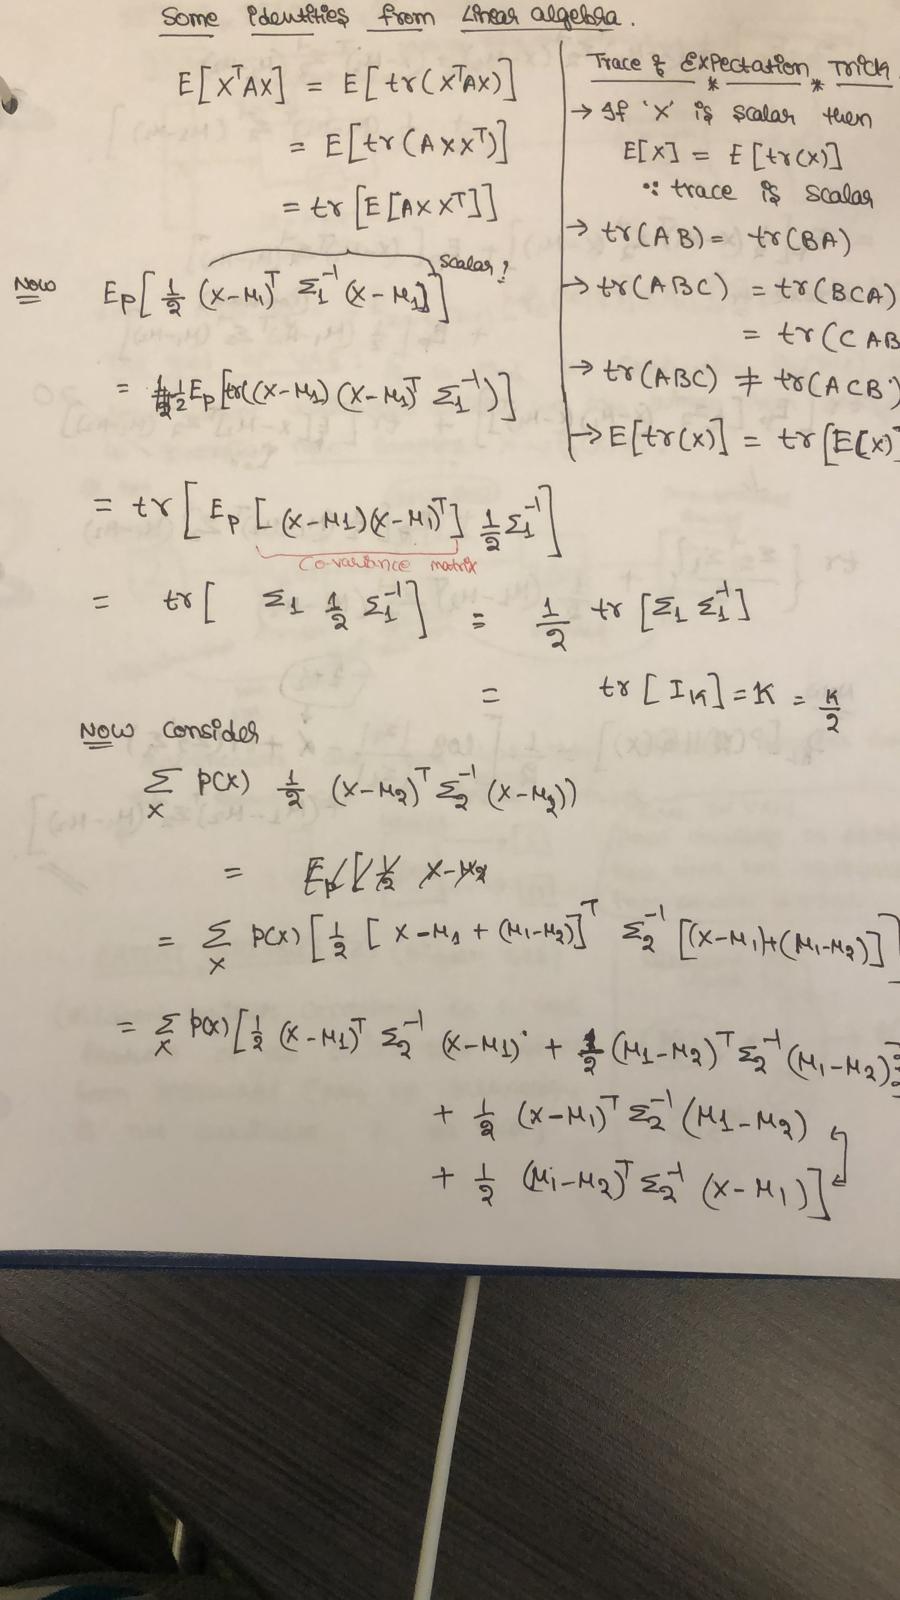 Some identities from Linear algebra.
E[XᵀAX] = E[tr(XᵀAX)]
= E[tr(AXXᵀ)]
= tr[E[AXXᵀ]]
Trace & Expectation Trick
* *
→ If 'X' is scalar then
E[X] = E[tr(x)]
∵ trace is scalar
→ tr(AB) = tr(BA)
→ tr(ABC) = tr(BCA)
= tr(CAB
→ tr(ABC) ≠ tr(ACB)
→ E[tr(x)] = tr[E(x)]
Now E_P[½ (x-μ₁)ᵀ Σ₁⁻¹ (x-μ₁)] scalar?
= ½ E_P[tr((x-μ₁)(x-μ₁)ᵀ Σ₁⁻¹)]
= tr[E_P[(x-μ1)(x-μ₁)ᵀ] ½ Σ₁⁻¹]
Co-variance matrix
= tr[ Σ₁ ½ Σ₁⁻¹] = ½ tr[Σ₁ Σ₁⁻¹]
= tr[I_K] = K = K/2
NOW consider
Σ_x P(x) ½ (x-μ₂)ᵀ Σ₂⁻¹ (x-μ₂))
= E_P[½ x-μ₂
= Σ_x P(x) [½ [x-μ₁ + (μ₁-μ₂)]ᵀ Σ₂⁻¹ [(x-μ₁)+(μ₁-μ₂)]]
= Σ_x P(x) [½ (x-μ1)ᵀ Σ₂⁻¹ (x-μ1) + ½ (μ1-μ2)ᵀ Σ₂⁻¹ (μ₁-μ2)
+ ½ (x-μ₁)ᵀ Σ₂⁻¹ (μ1-μ2)
+ ½ (μ₁-μ2)ᵀ Σ₂⁻¹ (x-μ₁)]